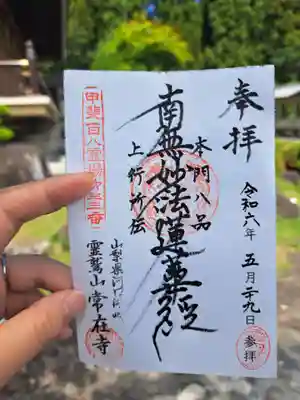 奉拝
令和六年 五月二十九日
参拝
本門八品
南無妙法蓮華経
上行所伝
甲斐百八霊場第五十三番
霊鷲山 常在寺